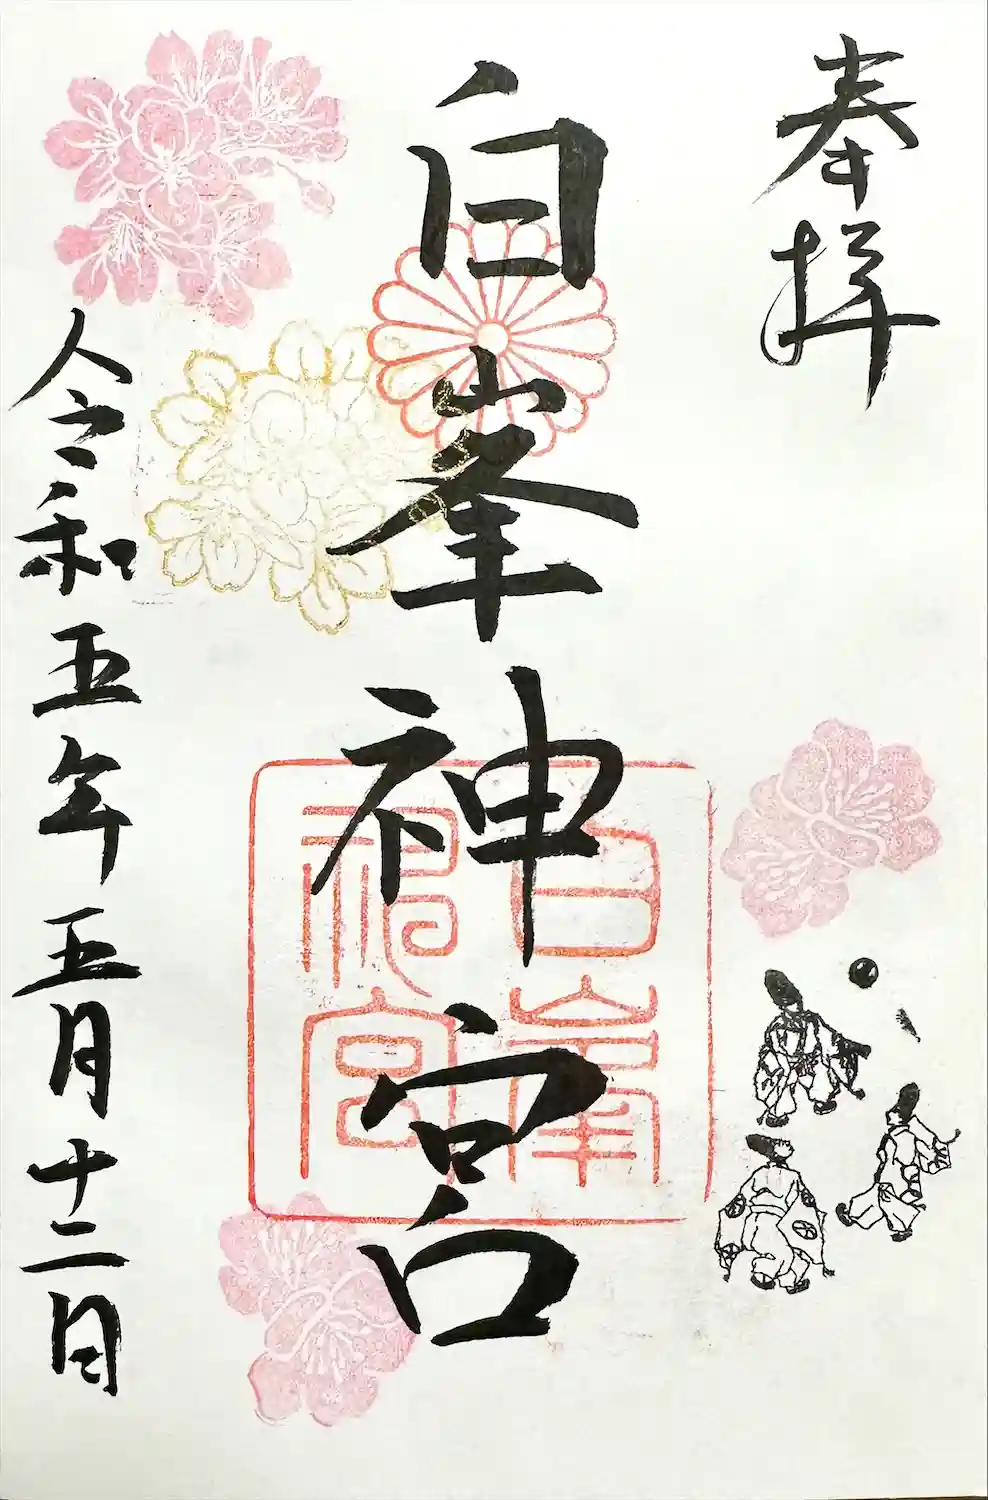 奉拝
白峯神宮
白峯
神宮
令和五年五月十二日